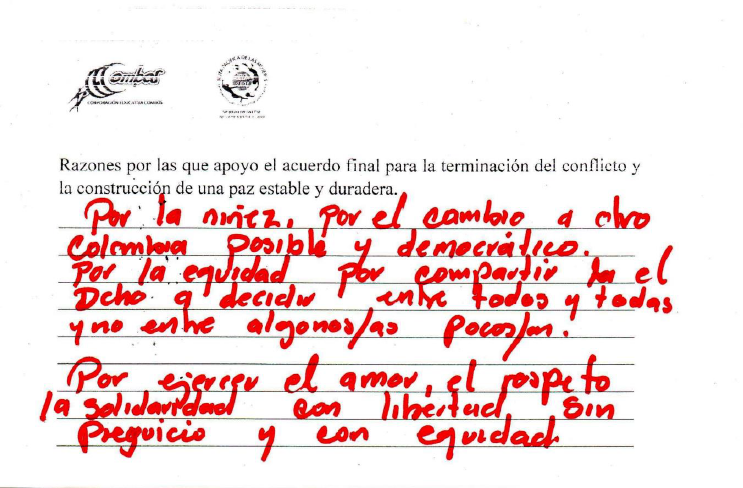 Combos
CORPORACIÓN EDUCATIVA COMBOS
Razones por las que apoyo el acuerdo final para la terminación del conflicto y
la construcción de una paz estable y duradera.
Por la niñez, Por el cambio a otro
Colombia Posible y democrático.
Por la equidad por compartir la el
Dcho a decidir entre todos y todas
y no entre algonos/as Pocos/as.
Por ejercer el amor, el respeto
la solidaridad con libertad sin
Preguicio y con equidad